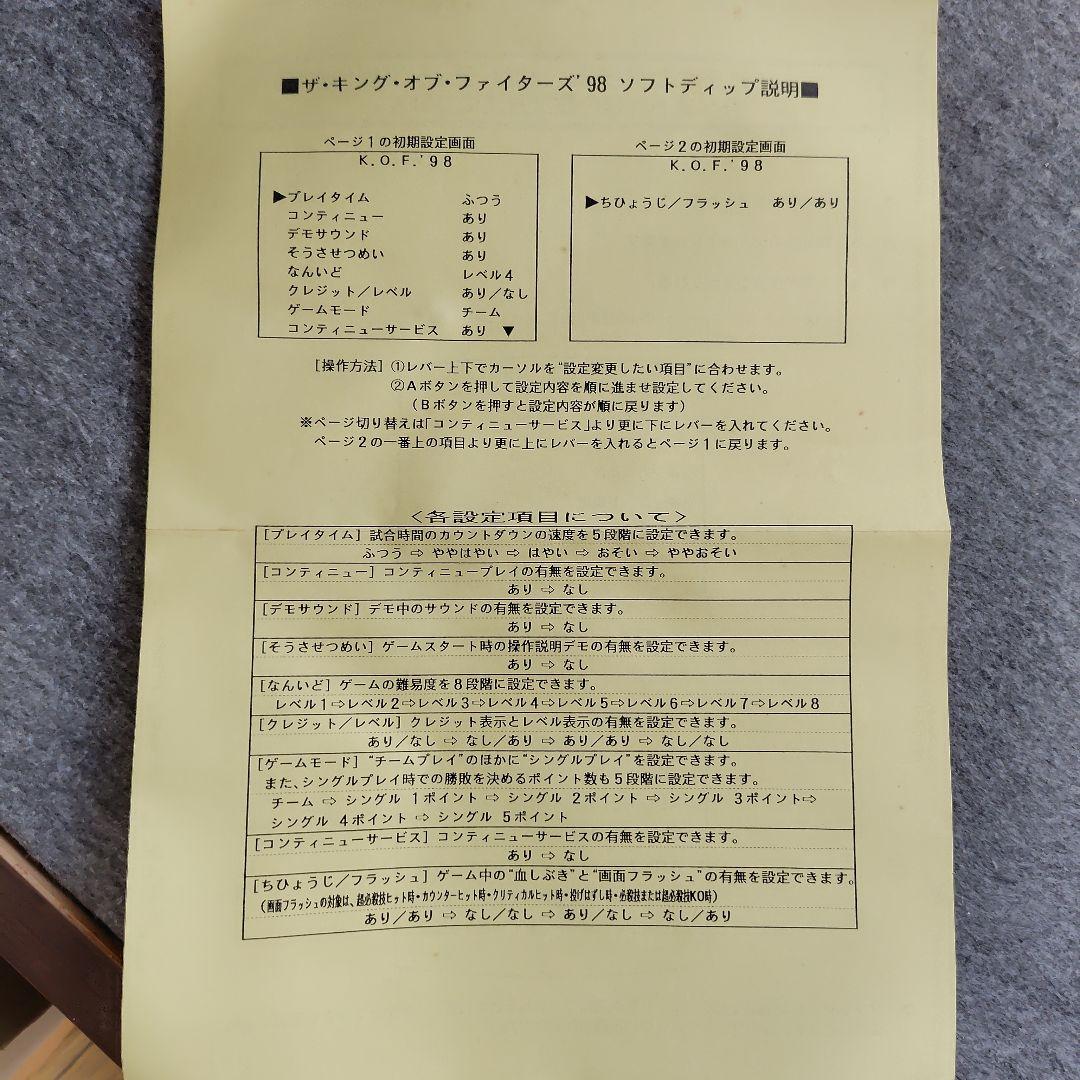 ■ザ・キング・オブ・ファイターズ'98 ソフトディップ説明■
ページ1の初期設定画面
K.O.F.'98
▶プレイタイム ふつう
コンティニュー あり
デモサウンド あり
そうさせつめい あり
なんいど レベル4
クレジット／レベル あり／なし
ゲームモード チーム
コンティニューサービス あり ▼
ページ2の初期設定画面
K.O.F.'98
▶ちひょうじ／フラッシュ あり／あり
[操作方法] ①レバー上下でカーソルを“設定変更したい項目”に合わせます。
②Aボタンを押して設定内容を順に進ませ設定してください。
（Bボタンを押すと設定内容が順に戻ります）
※ページ切り替えは「コンティニューサービス」より更に下にレバーを入れてください。
ページ2の一番上の項目より更に上にレバーを入れるとページ1に戻ります。
＜各設定項目について＞
[プレイタイム] 試合時間のカウントダウンの速度を5段階に設定できます。
ふつう ⇨ ややはやい ⇨ はやい ⇨ おそい ⇨ ややおそい
[コンティニュー] コンティニュープレイの有無を設定できます。
あり ⇨ なし
[デモサウンド] デモ中のサウンドの有無を設定できます。
あり ⇨ なし
[そうさせつめい] ゲームスタート時の操作説明デモの有無を設定できます。
あり ⇨ なし
[なんいど] ゲームの難易度を8段階に設定できます。
レベル1⇨レベル2⇨レベル3⇨レベル4⇨レベル5⇨レベル6⇨レベル7⇨レベル8
[クレジット／レベル] クレジット表示とレベル表示の有無を設定できます。
あり／なし ⇨ なし／あり ⇨ あり／あり ⇨ なし／なし
[ゲームモード] “チームプレイ”のほかに“シングルプレイ”を設定できます。
また、シングルプレイ時での勝敗を決めるポイント数も5段階に設定できます。
チーム ⇨ シングル 1ポイント ⇨ シングル 2ポイント ⇨ シングル 3ポイント⇨
シングル 4ポイント ⇨ シングル 5ポイント
[コンティニューサービス] コンティニューサービスの有無を設定できます。
あり ⇨ なし
[ちひょうじ／フラッシュ] ゲーム中の“血しぶき”と“画面フラッシュ”の有無を設定できます。
（画面フラッシュの対象は、超必殺技ヒット時・カウンターヒット時・クリティカルヒット時・投げはずし時・必殺技または超必殺技KO時）
あり／あり ⇨ なし／なし ⇨ あり／なし ⇨ なし／あり